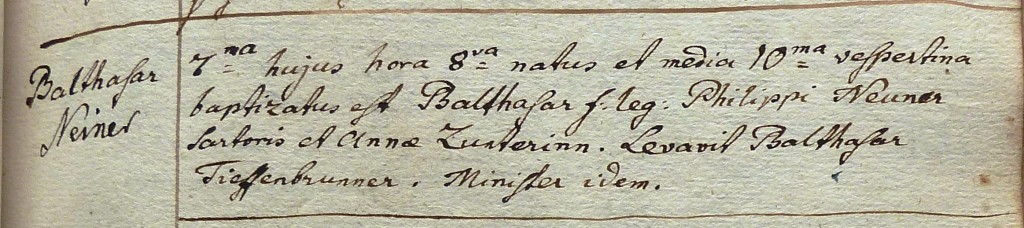 Balthasar
Neiner
7ma hujus hora 8va natus et media 10ma vespertina
baptizatus est Balthasar f: leg: Philippi Neuner
sartoris et Annæ Zunterinn. Levavit Balthasar
Tieffenbrunner. Minister idem.